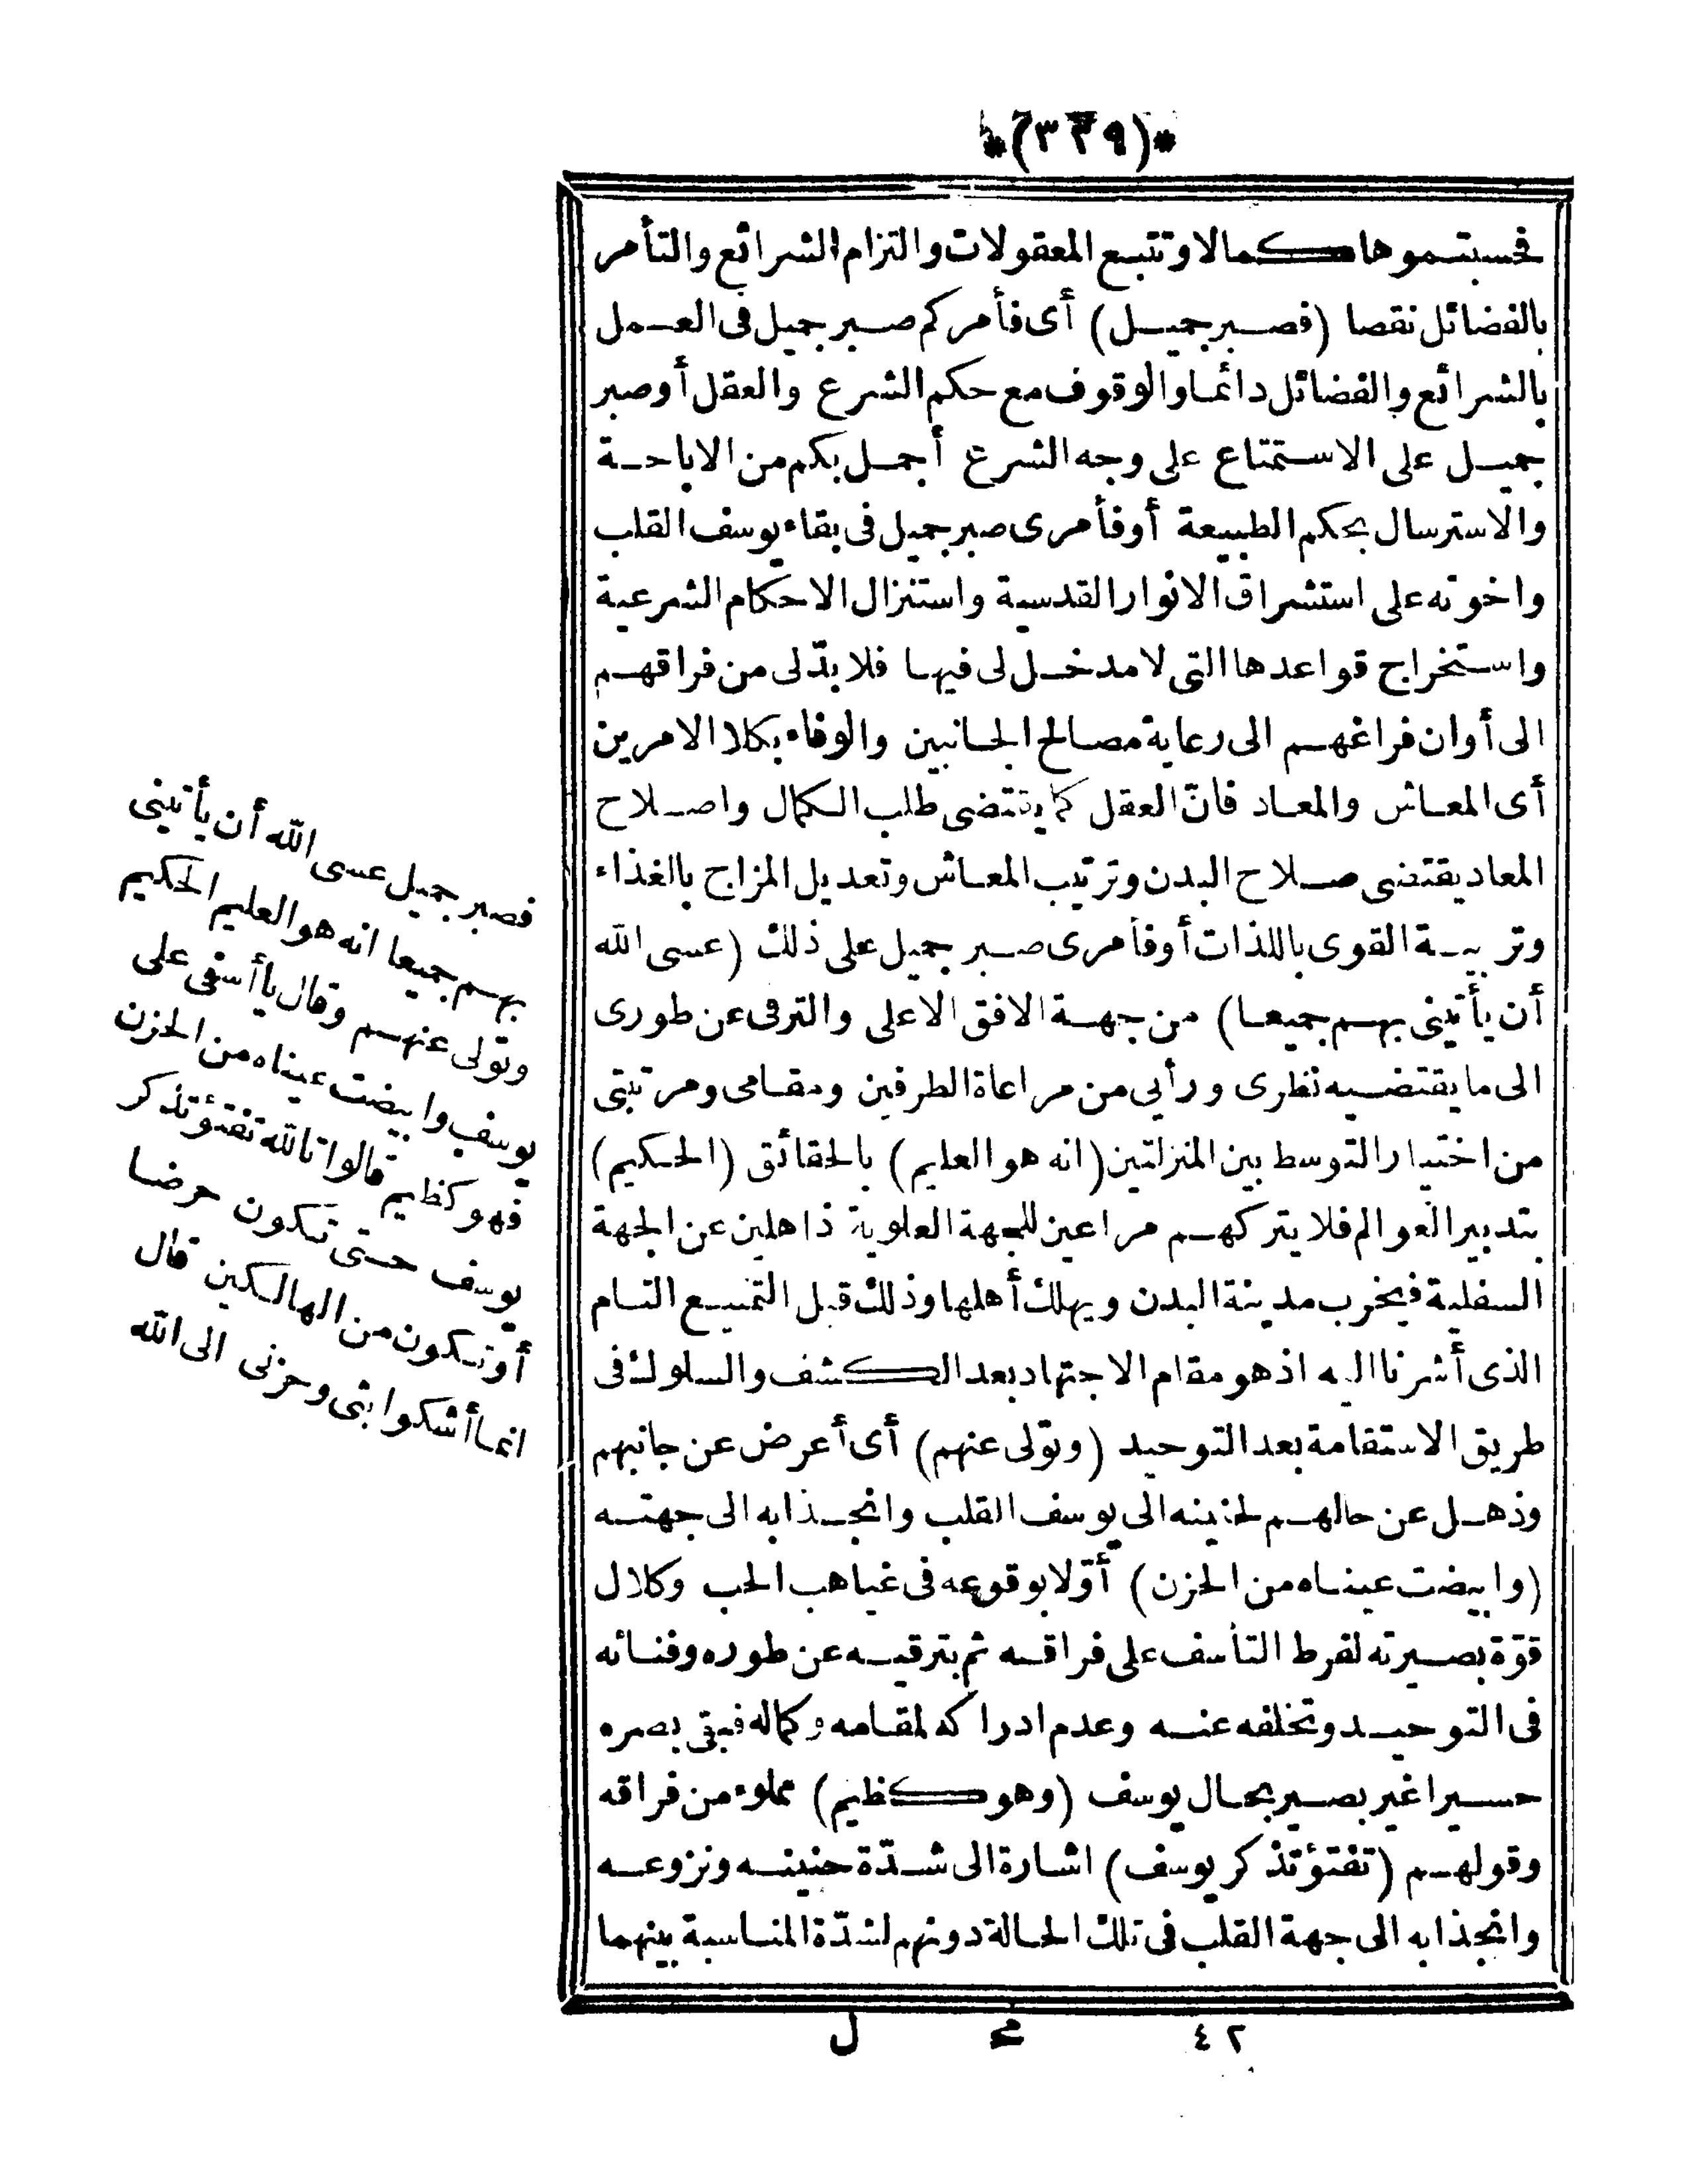 *(٣٢٩)*
فحسبتموها كمالا وتتبع المعقولات والتزام الشرائع والتأمر
بالفضائل نقصا (فصبر جميل) أى فأمركم صبر جميل فى العمل
بالشرائع والفضائل دائما والوقوف مع حكم الشرع والعقل أو صبر
جميل على الاستمتاع على وجه الشرع أجمل بكم من الاباحة
والاسترسال بحكم الطبيعة أو فأمرى صبر جميل فى بقاء يوسف القلب
واخوته على استشراق الانوار القدسية واستنزال الاحكام الشرعية
واستخراج قواعدها التى لا مدخل لى فيها فلا بدّ لى من فراقهم
الى أوان فراغهم الى رعاية مصالح الجانبين والوفاء بكلا الامرين
أى المعاش والمعاد فانّ العقل كما يقتضى طلب الكمال واصلاح
المعاد يقتضى صلاح البدن وترتيب المعاش وتعديل المزاج بالغذاء
وتربية القوى باللذات أو فأمرى صبر جميل على ذلك (عسى الله
أن يأتينى بهم جميعا) من جهة الافق الاعلى والترقى عن طورى
الى ما يقتضيه نظرى ورأيى من مراعاة الطرفين ومقامى ومرتبتى
من اختيار التوسط بين المنزلتين (انه هو العليم) بالحقائق (الحكيم)
بتدبير العوالم فلا يتركهم مراعين للجهة العلوية ذاهلين عن الجهة
السفلية فيخرب مدينة البدن ويهلك أهلها وذلك قبل التمتيع التام
الذى أشرنا اليه اذ هو مقام الاجتهاد بعد الكشف والسلوك فى
طريق الاستقامة بعد التوحيد (وتولى عنهم) أى أعرض عن جانبهم
وذهل عن حالهم لحنينه الى يوسف القلب وانجذابه الى جهته
(وابيضت عيناه من الحزن) أوّلا بوقوعه فى غياهب الجب وكلال
قوّة بصيرته لفرط التأسف على فراقه ثم بترقيه عن طوره وفنائه
فى التوحيد وتخلفه عنه وعدم ادراكه لمقامه وكماله فبقى بصره
حسيرا غير بصير بحال يوسف (وهو كظيم) مملوء من فراقه
وقولهم (تفتؤ تذكر يوسف) اشارة الى شدّة حنينه ونزوعه
وانجذابه الى جهة القلب فى تلك الحالة دونهم لشدّة المناسبة بينهما
فصبر جميل عسى الله أن يأتينى
بهم جميعا انه هو العليم الحكيم
وتولى عنهم وقال يا أسفى على
يوسف وابيضت عيناه من الحزن
فهو كظيم قالوا تالله تفتؤ تذكر
يوسف حتى تكون حرضا
أو تكون من الهالكين قال
انما أشكوا بثى وحزنى الى الله
٤٢ مح ل